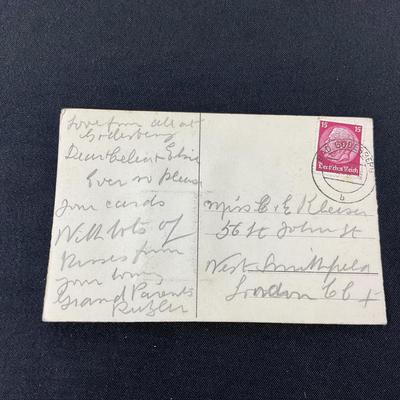 Love from all at
Godesberg
Dear Celia & Elsie
Ever so please
your cards
With lots of
Kisses from
your loving
Grand Parents
15 15
Deutsches Reich
b
Miss C. E Kleiser
56 St John St
West Smithfield
London